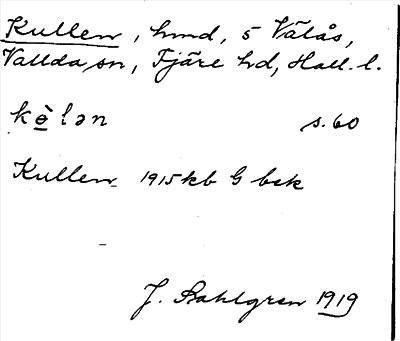 Kullen, hmd, 5 Välås,
Vallda sn, Fjäre hd, Hall. l.
kè̱lən s. 60
Kullen 1915 kb G bsk
J. Sahlgren 1919